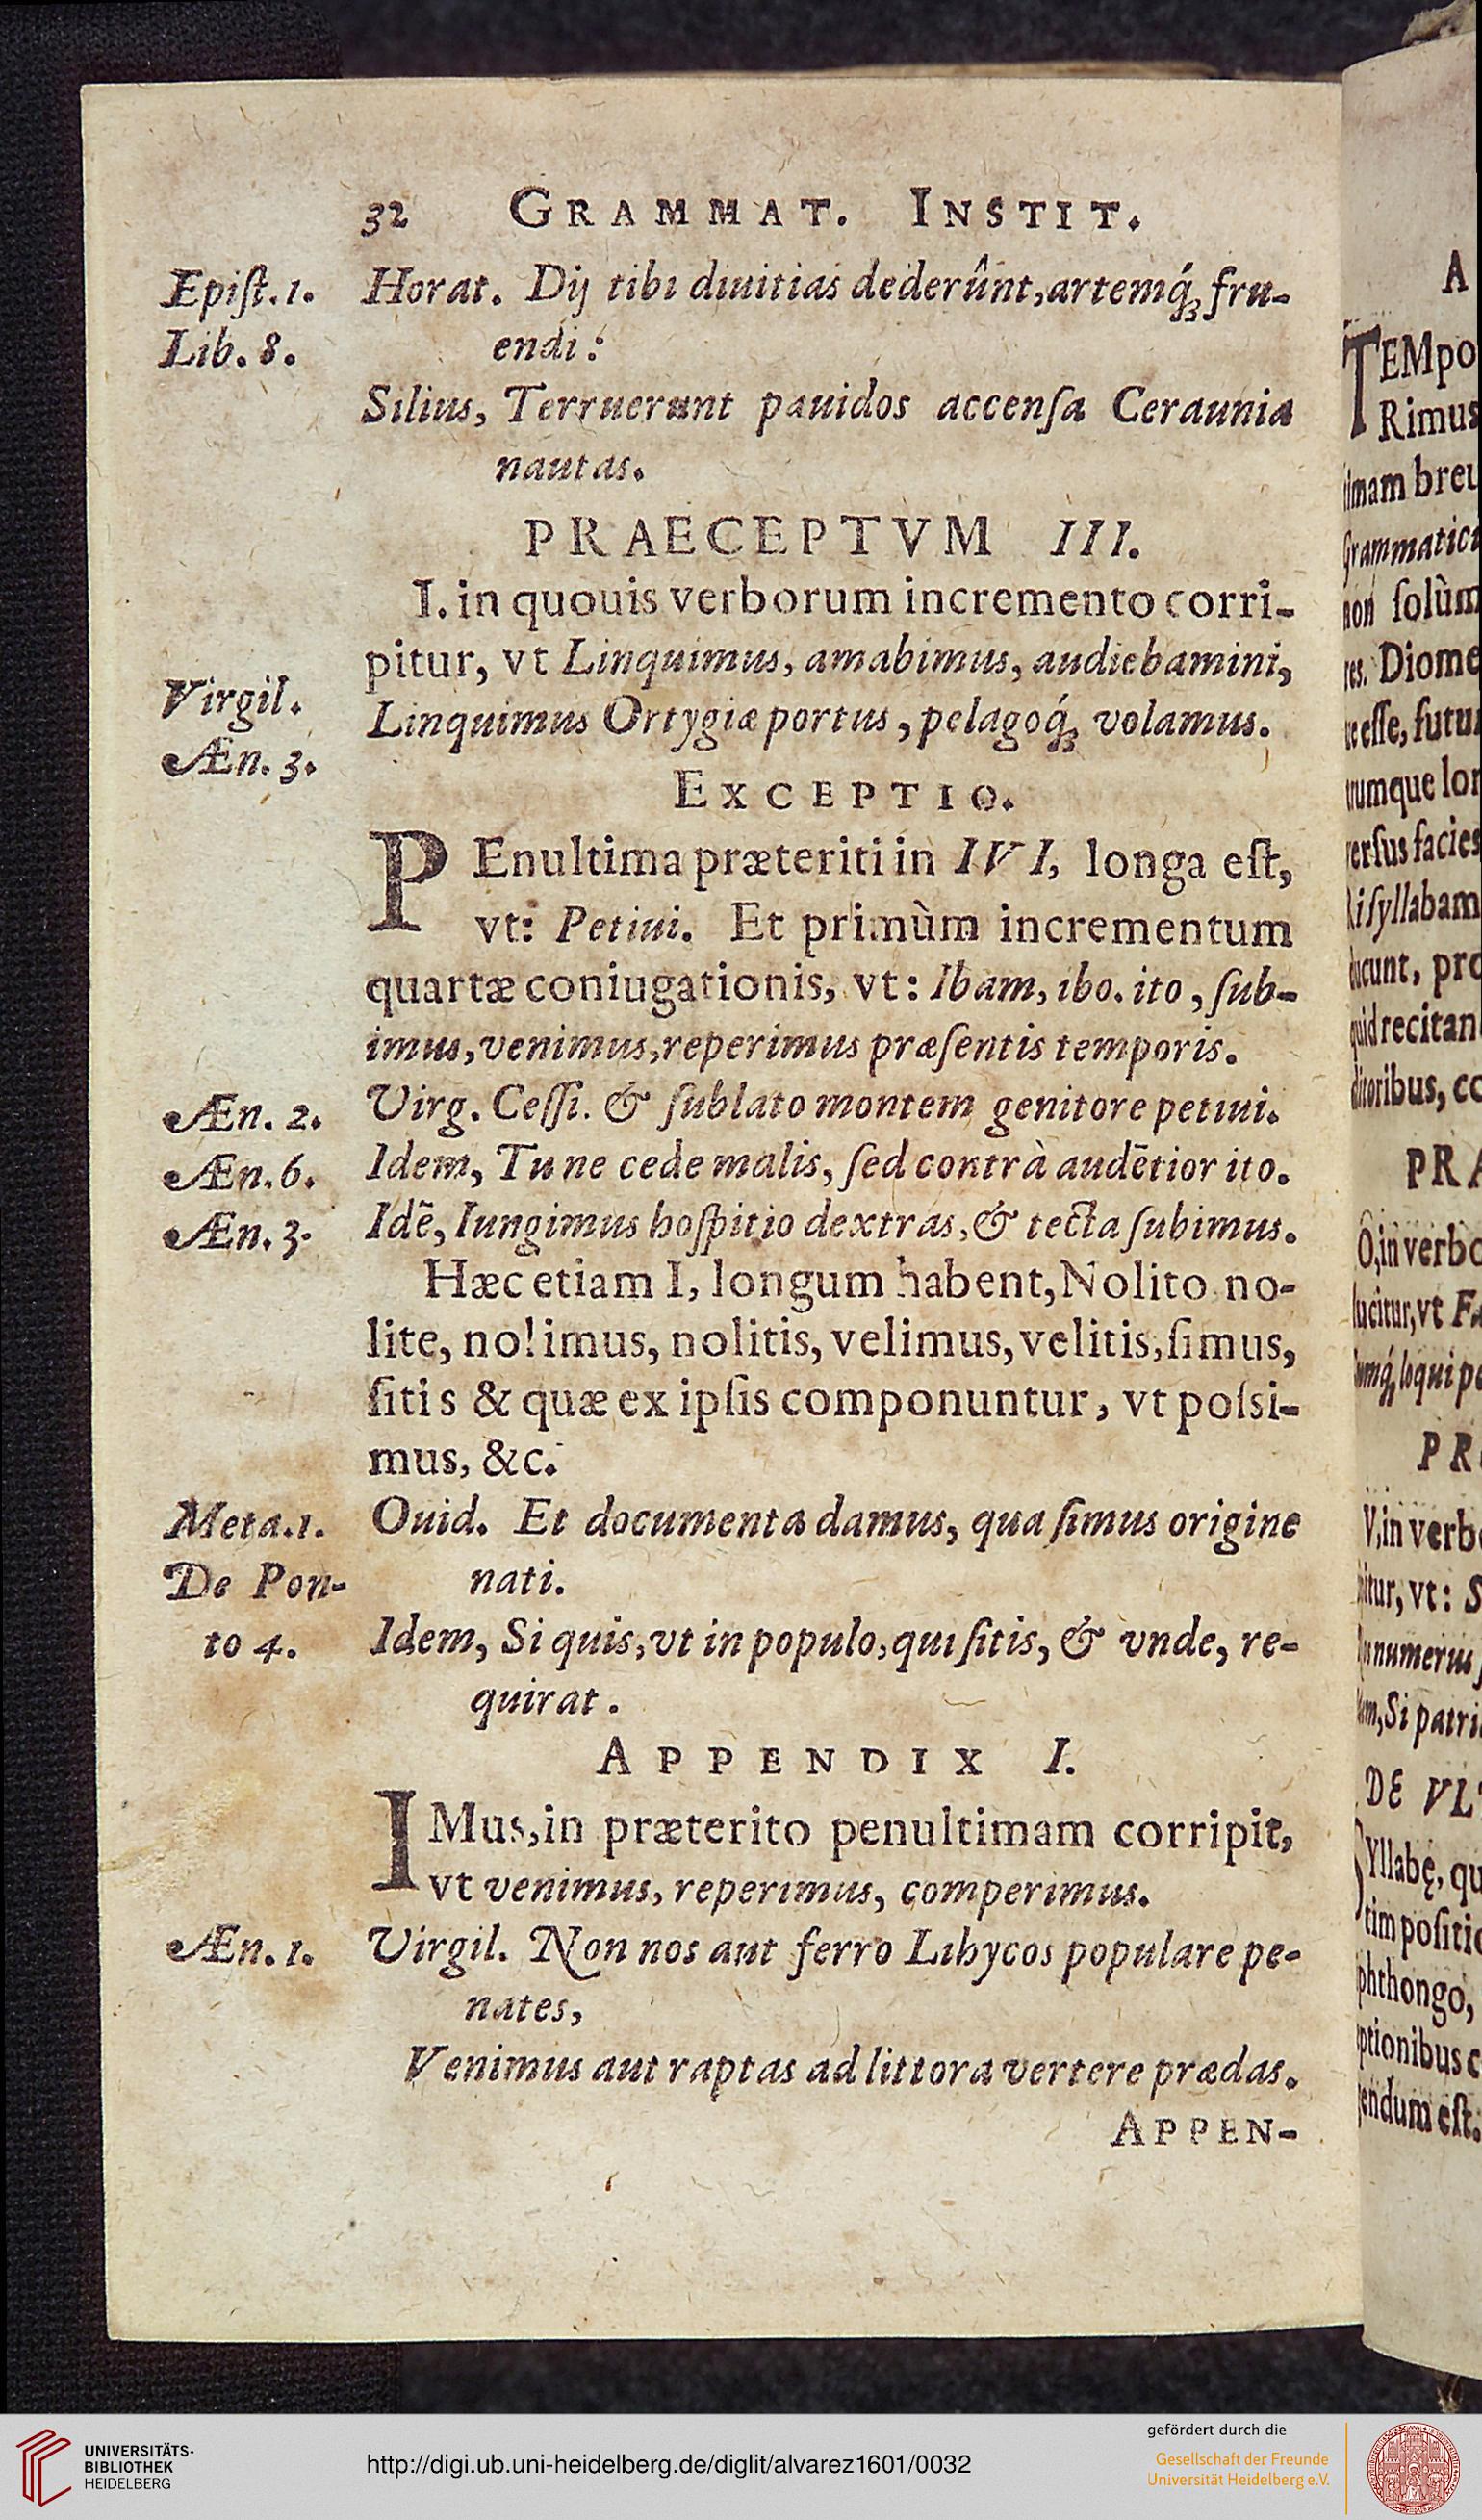 32 GRAMMAT. INSTIT.
Epiſt. 1. Horat. Dij tibi diuitias dederûnt, artemq́; fru-
Lib. 8. endi:
Silius, Terruerunt pauidos accenſa Ceraunia
nautas.
PRAECEPTVM III.
I. in quouis verborum incremento corri-
pitur, vt Linquimus, amabimus, audiebamini,
Virgil. Linquimus Ortygiæ portus, pelagoq́; volamus.
Æn. 3.
EXCEPTIO.
PEnultima præteriti in IVI, longa eſt,
vt: Petiui. Et primùm incrementum
quartæ coniugationis, vt: Ibam, ibo. ito, ſub-
imus, venimus, reperimus præſentis temporis.
Æn. 2. Virg. Ceſſi. & ſublato montem genitore petiui.
Æn. 6. Idem, Tu ne cede malis, ſed contrà audẽtior ito.
Æn. 3. Idẽ, Iungimus hoſpitio dextras, & tecta ſubimus.
Hæc etiam I, longum habent, Nolito no-
lite, nolimus, nolitis, velimus, velitis, ſimus,
ſitis & quæ ex ipſis componuntur, vt poſsi-
mus, &c.
Meta. 1. Ouid. Et documenta damus, qua ſimus origine
De Pon- nati.
to 4. Idem, Si quis, vt in populo, qui ſitis, & vnde, re-
quirat.
APPENDIX I.
IMus, in præterito penultimam corripit,
vt venimus, reperimus, comperimus.
Æn. 1. Virgil. Non nos aut ferro Libycos populare pe-
nates,
Venimus aut raptas ad littora vertere prædas.
APPEN-
A
TEMpo
Rimus
imam breu
Grammatici
non ſolùm
res. Diome
eſſe, futu
trumque lon
verſus facies
ſyllabam
ducunt, pro
quid recitan
ditoribus, co
PRA
O, in verbo
ducitur, vt Fa
loqui po
PR
V, in verb
pitur, vt: S
numerus
Si patri
DE VL
Syllabę, qu
tim poſitio
phthongo,
ptionibus c
endum eſt.
UNIVERSITÄTS-
BIBLIOTHEK
HEIDELBERG
http://digi.ub.uni-heidelberg.de/diglit/alvarez1601/0032
gefördert durch die
Gesellschaft der Freunde
Universität Heidelberg e.V.